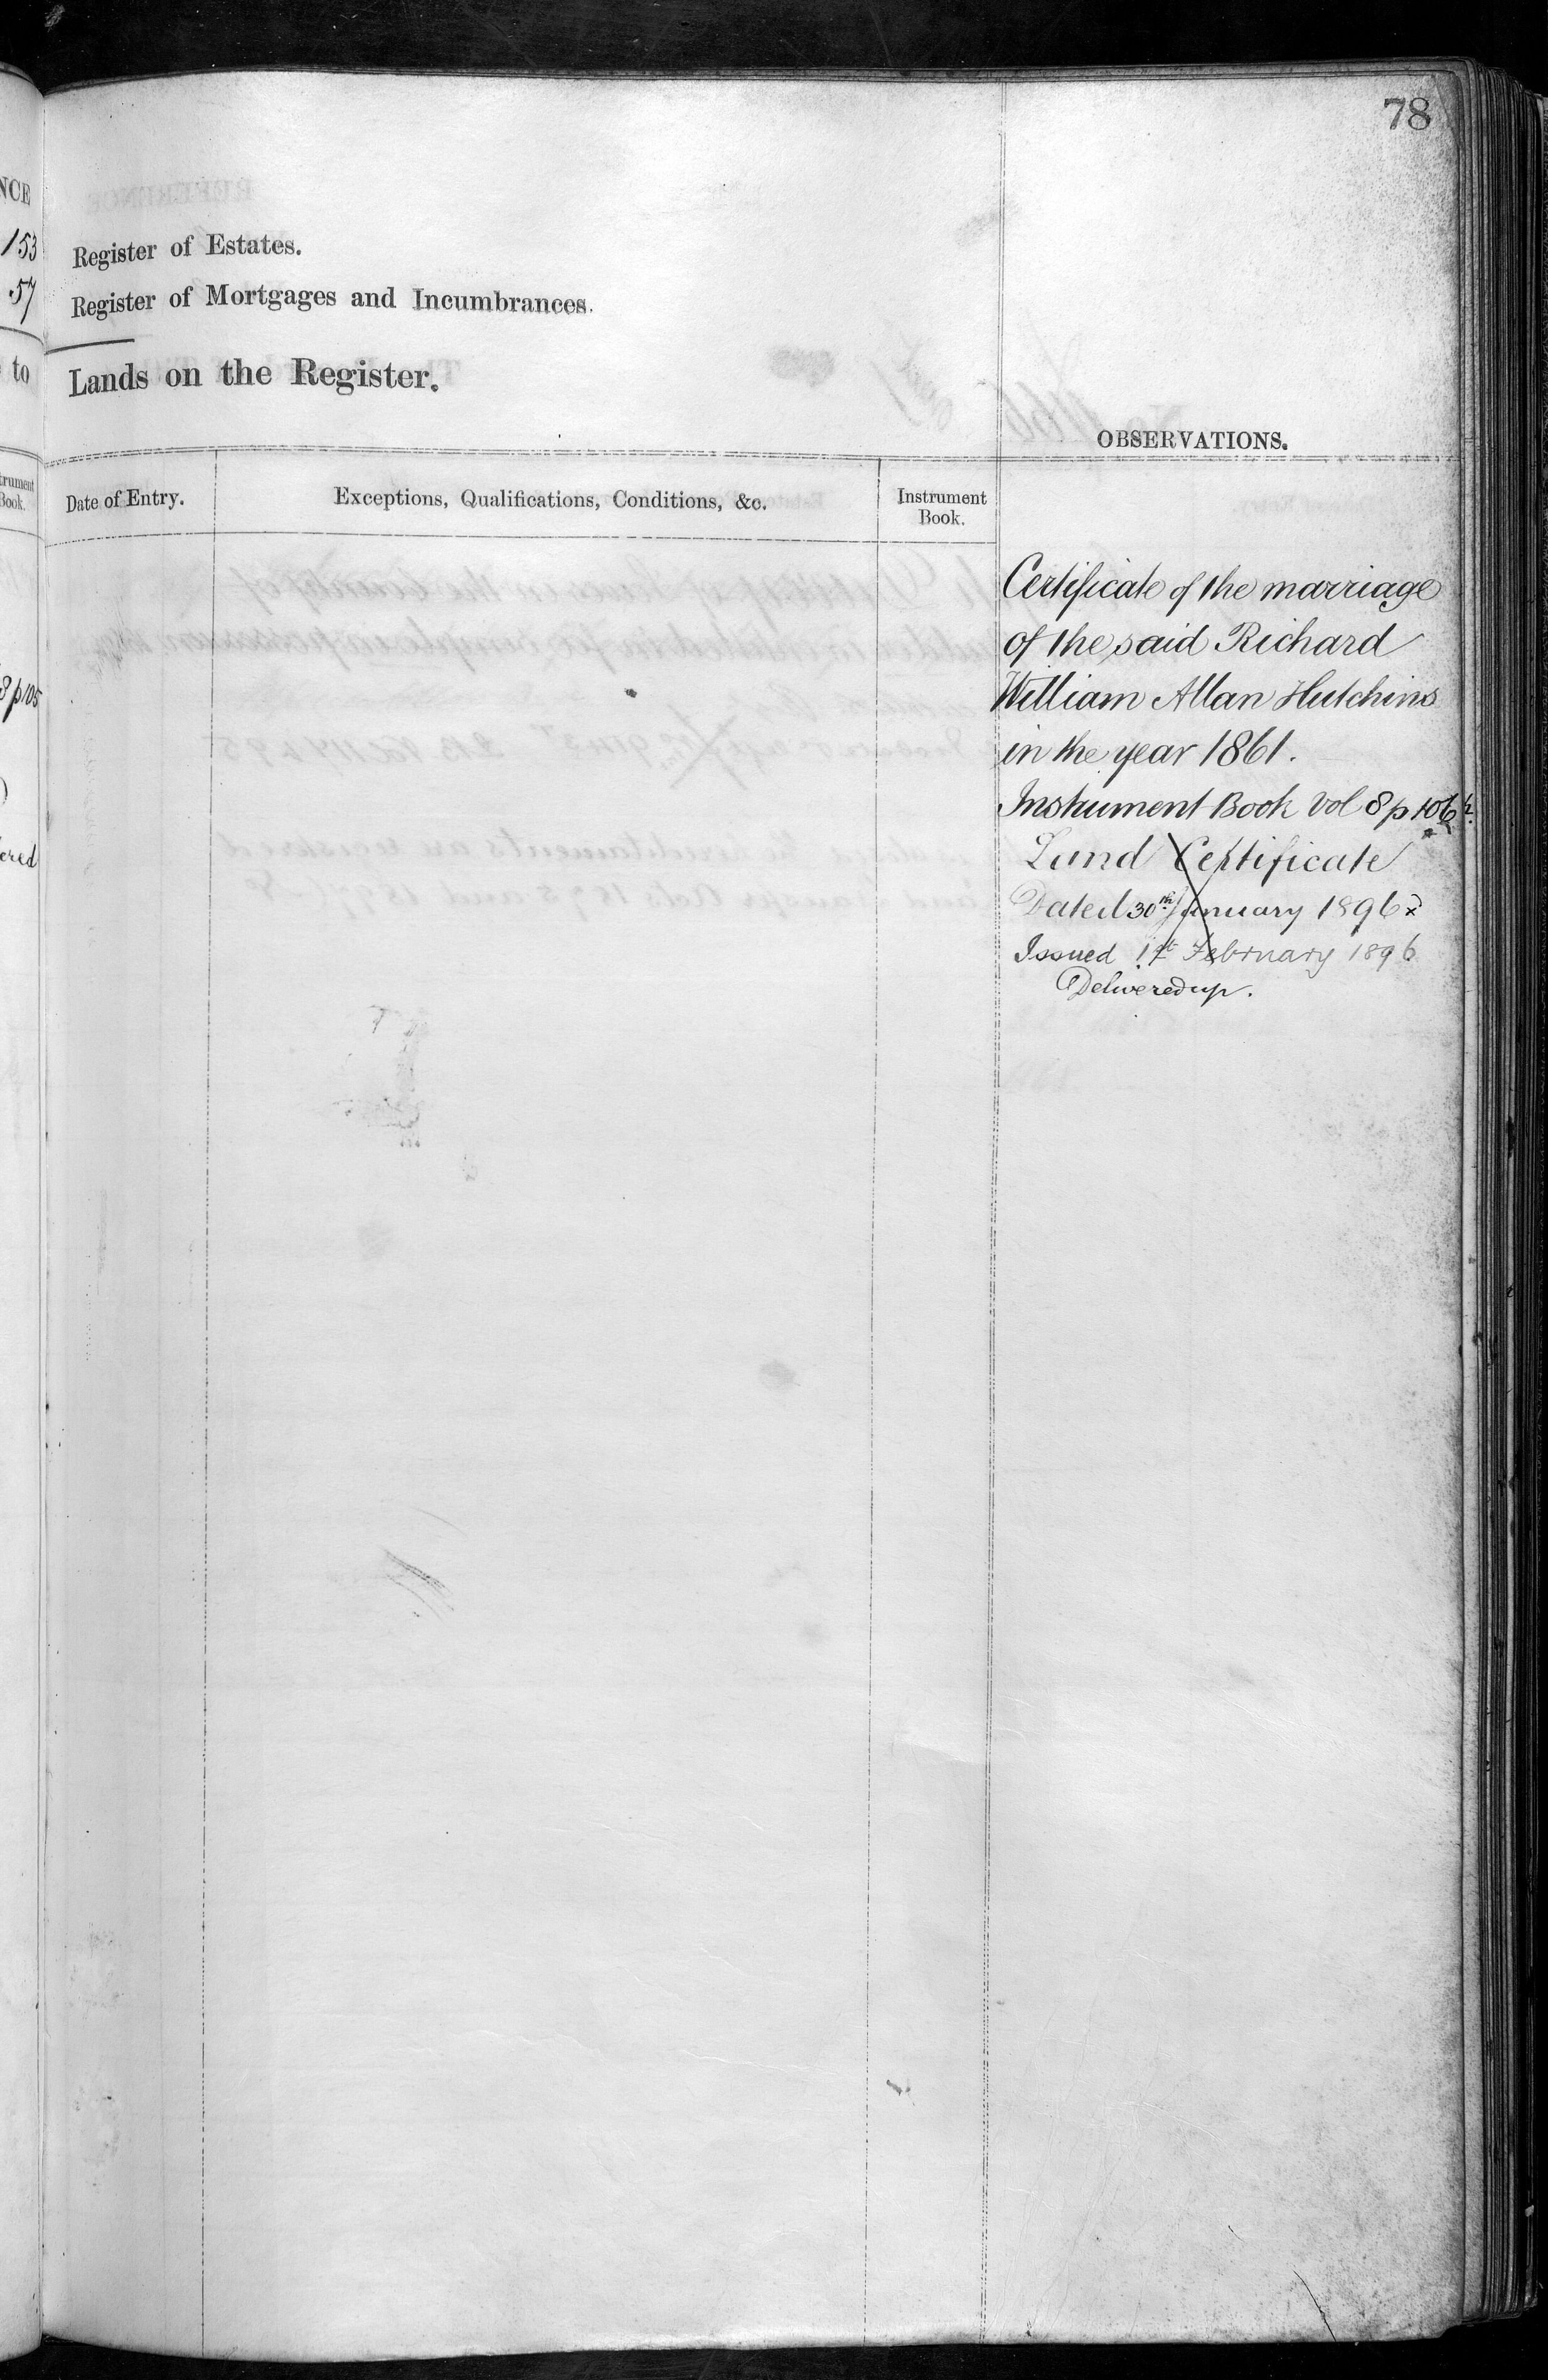 78
NCE
153
57
to
Register of Estates.
Register of Mortgages and Incumbrances.
Lands on the Register.
OBSERVATIONS.
Date of Entry.
Exceptions, Qualifications, Conditions, &c.
Instrument
Book.
trument
Book.
8 p 105
ered
Certificate of the marriage
of the said Richard
William Allan Hutchins
in the year 1861.
Instrument Book Vol 8 p 106
Land Certificate
Dated 30th January 1896
Issued 1st February 1896
Delivered up.